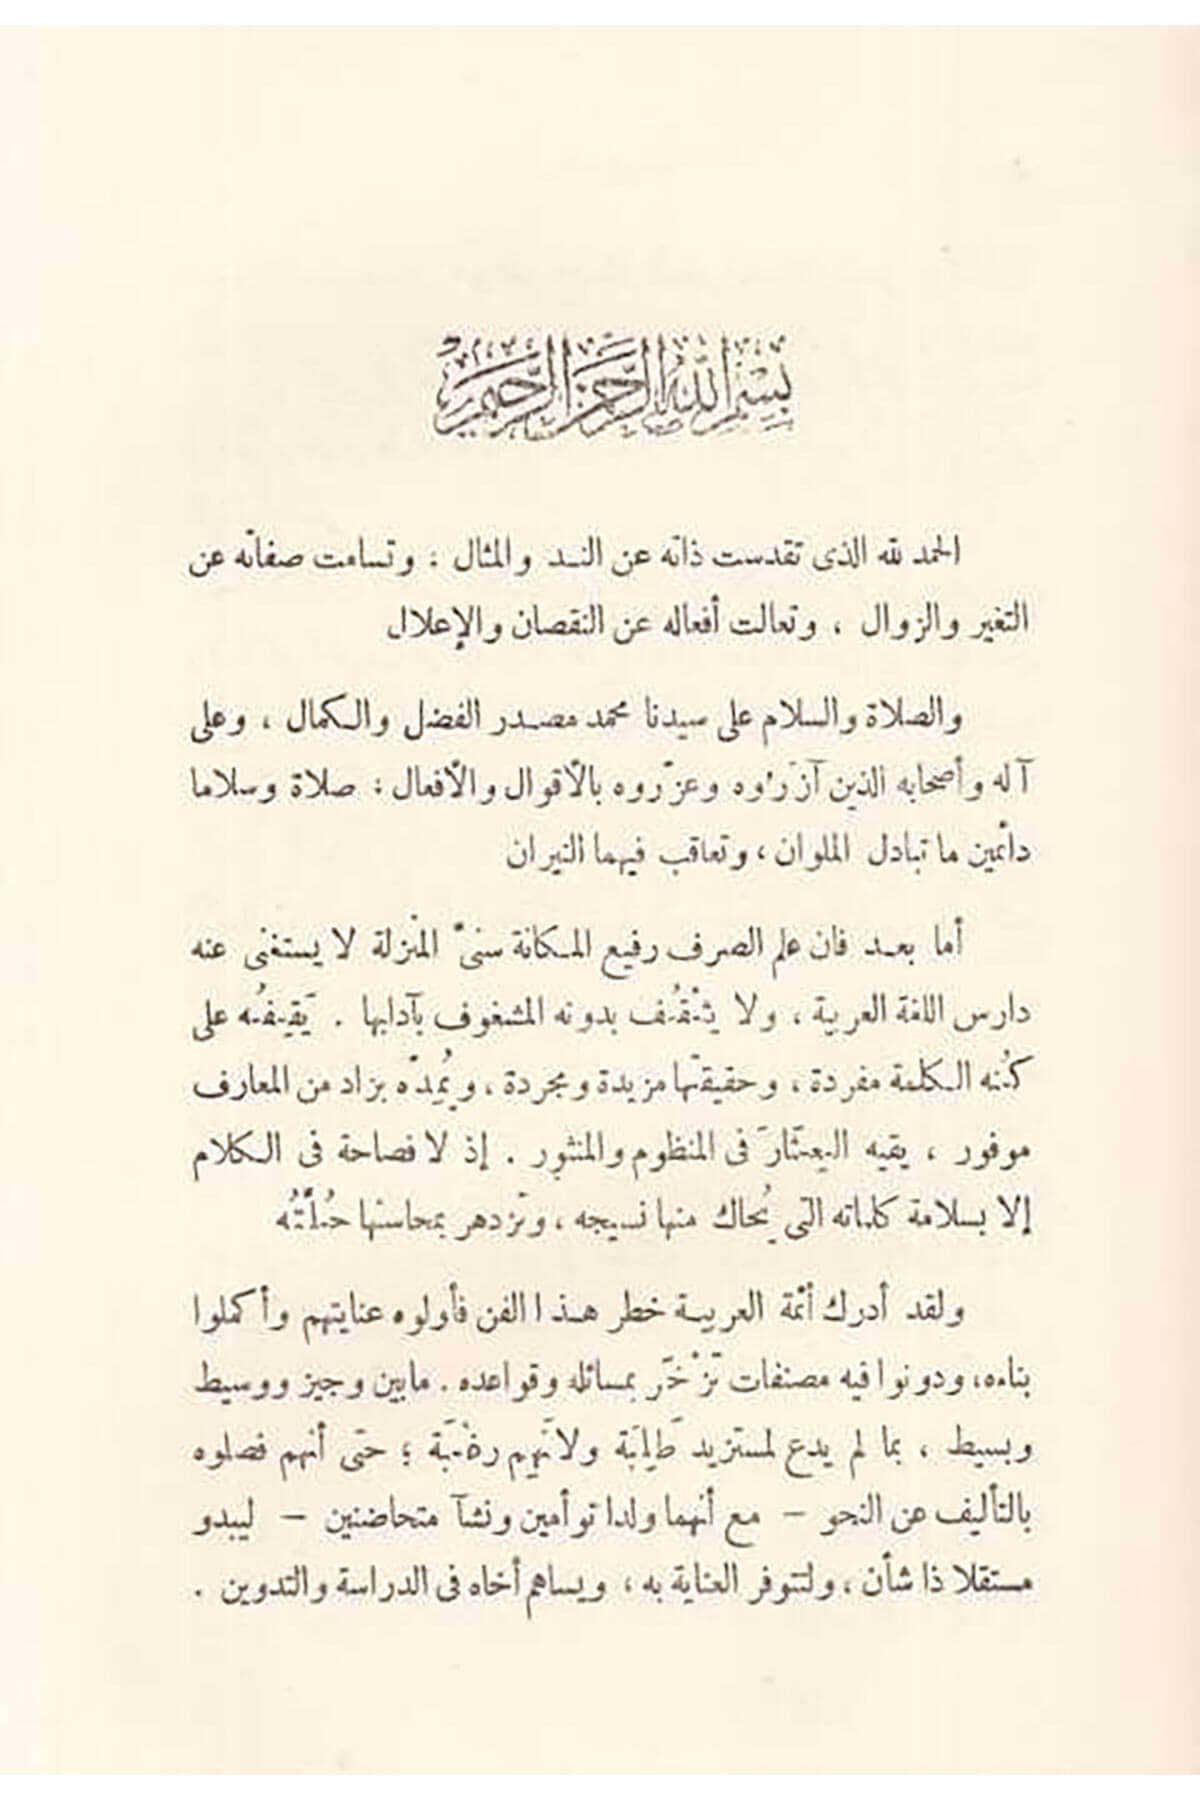 بسم الله الرحمن الرحيم
الحمد لله الذى تقدست ذاته عن النـد والمثال ؛ وتسامت صفاته عن
التغير والزوال ، وتعالت أفعاله عن النقصان والإعلال
والصلاة والسلام على سيدنا محمد مصدر الفضل والكمال ، وعلى
آله وأصحابه الذين آزَرُوه وعزّروه بالأقوال والأفعال ؛ صلاة وسلاما
دائمين ما تبادل الملوان ، وتعاقب فيهما النيران
أما بعد فان علم الصرف رفيع المكانة سنىّ المنزلة لا يستغنى عنه
دارس اللغة العربية ، ولا يَثْقُف بدونه المشغوف بآدابها . يَقِفُه على
كُنْه الكلمة مفردة ، وحقيقتها مزيدة ومجردة ، ويُمِدّه بزاد من المعارف
موفور ، يقيه العِثَارَ فى المنظوم والمنثور . إذ لا فصاحة فى الكلام
إلا بسلامة كلماته التى يُحاك منها نسيجه ، وتزدهر بمحاسنها حُلَّتُه
ولقد أدرك أئمة العربية خطر هذا الفن فأولوه عنايتهم وأكملوا
بناءه، ودونوا فيه مصنفات تَزْخَر بمسائله وقواعده . مابين وجيز ووسيط
وبسيط ، بما لم يدع لمستزيد طَلِبَة ولا لَنهِم رغْبَة ؛ حتى أنهم فصلوه
بالتأليف عن النحو – مع أنهما ولدا توأمين ونشآ متحاضنين – ليبدو
مستقلا ذا شأن ، ولتتوفر العناية به ، ويساهم أخاه فى الدراسة والتدوين .